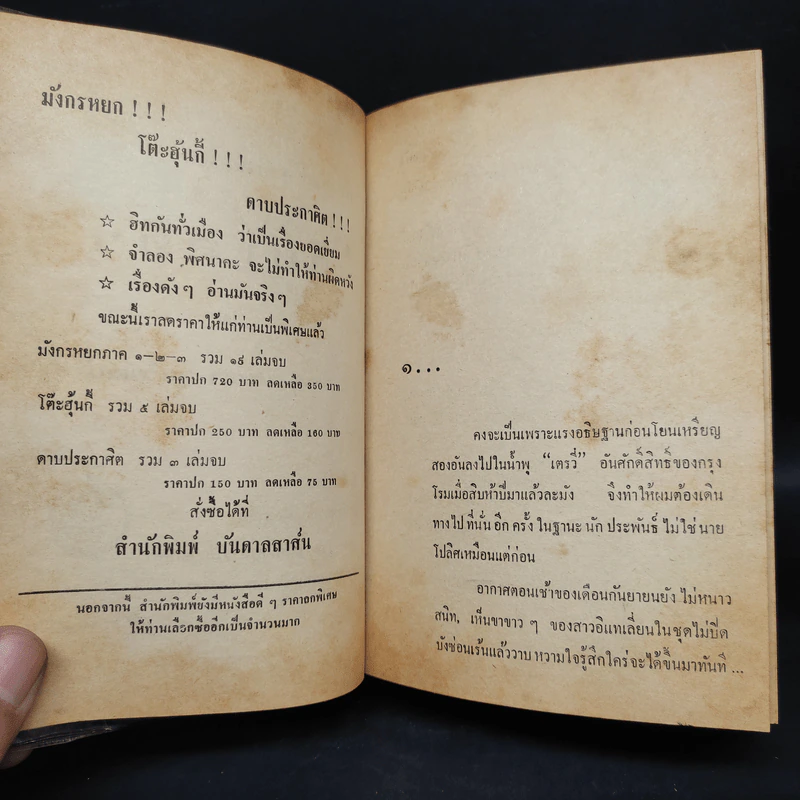 มังกรหยก ! ! !
โต๊ะฮุ้นกี้ ! ! !
ดาบประกาศิต ! ! !
☆ ฮิทกันทั่วเมือง ว่าเป็นเรื่องยอดเยี่ยม
☆ จำลอง พิศนาคะ จะไม่ทำให้ท่านผิดหวัง
☆ เรื่องดัง ๆ อ่านมันจริง ๆ
ขณะนี้เราลดราคาให้แก่ท่านเป็นพิเศษแล้ว
มังกรหยกภาค ๑-๒-๓ รวม ๑๙ เล่มจบ
ราคาปก 720 บาท ลดเหลือ 350 บาท
โต๊ะฮุ้นกี้ รวม ๕ เล่มจบ
ราคาปก 250 บาท ลดเหลือ 160 บาท
ดาบประกาศิต รวม ๓ เล่มจบ
ราคาปก 150 บาท ลดเหลือ 75 บาท
สั่งซื้อได้ที่
สำนักพิมพ์ บันดาลสาส์น
นอกจากนี้ สำนักพิมพ์ยังมีหนังสือดี ๆ ราคาลดพิเศษ
ให้ท่านเลือกซื้ออีกเป็นจำนวนมาก
๑...
คงจะเป็นเพราะแรงอธิษฐานก่อนโยนเหรียญ
สองอันลงไปในน้ำพุ “เตรวี่” อันศักดิ์สิทธิ์ของกรุง
โรมเมื่อสิบห้าปีมาแล้วละมัง จึงทำให้ผมต้องเดิน
ทางไป ที่นั่น อีก ครั้ง ใน ฐานะ นัก ประพันธ์ ไม่ใช่ นาย
โปลิศเหมือนแต่ก่อน
อากาศตอนเช้าของเดือนกันยายนยัง ไม่หนาว
สนิท, เห็นขาขาว ๆ ของสาวอิแทเลี่ยนในชุดไม่ปิด
บังซ่อนเร้นแล้ววาบ หวามใจรู้สึกใคร่จะได้ขึ้นมาทันที ...